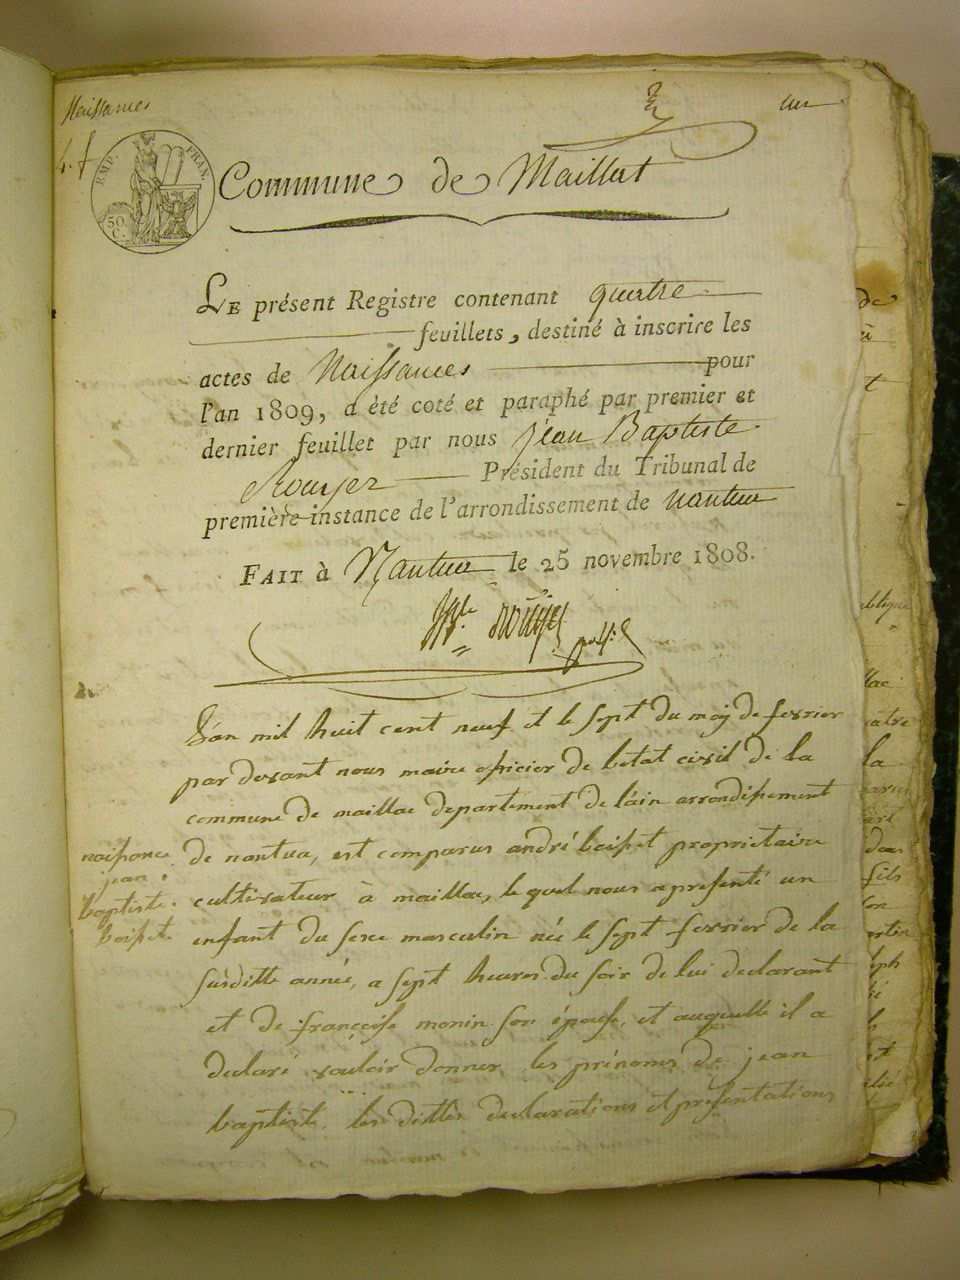 Naissances
4. f
EMP. FRAN.
50 C.
Commune de Maillat
LE présent Registre contenant quatre
feuillets, destiné à inscrire les
actes de Naissances pour
l'an 1809, a été coté et paraphé par premier et
dernier feuillet par nous jean Baptiste
Rouyer Président du Tribunal de
première instance de l'arrondissement de nantua
FAIT à Nantua le 25 novembre 1808.
L'an mil huit cent neuf et le sept du moy de fevrier
par devant nous maire oficier de letat civil de la
commune de maillac departement de l'ain arrondissement
de nantua, est comparus andré boisset proprietaire
cultivateur à maillac, le quel nous a presenté un
enfant du sexe masculin née le sept fevrier de la
susditte année, a sept heures du soir de lui declarant
et de françoise monin son épouse, et auquelle il a
declaré vouloir donner les prénoms de jean
baptiste. les dittes declarations et presentations
naissance
jean
baptiste
boisset